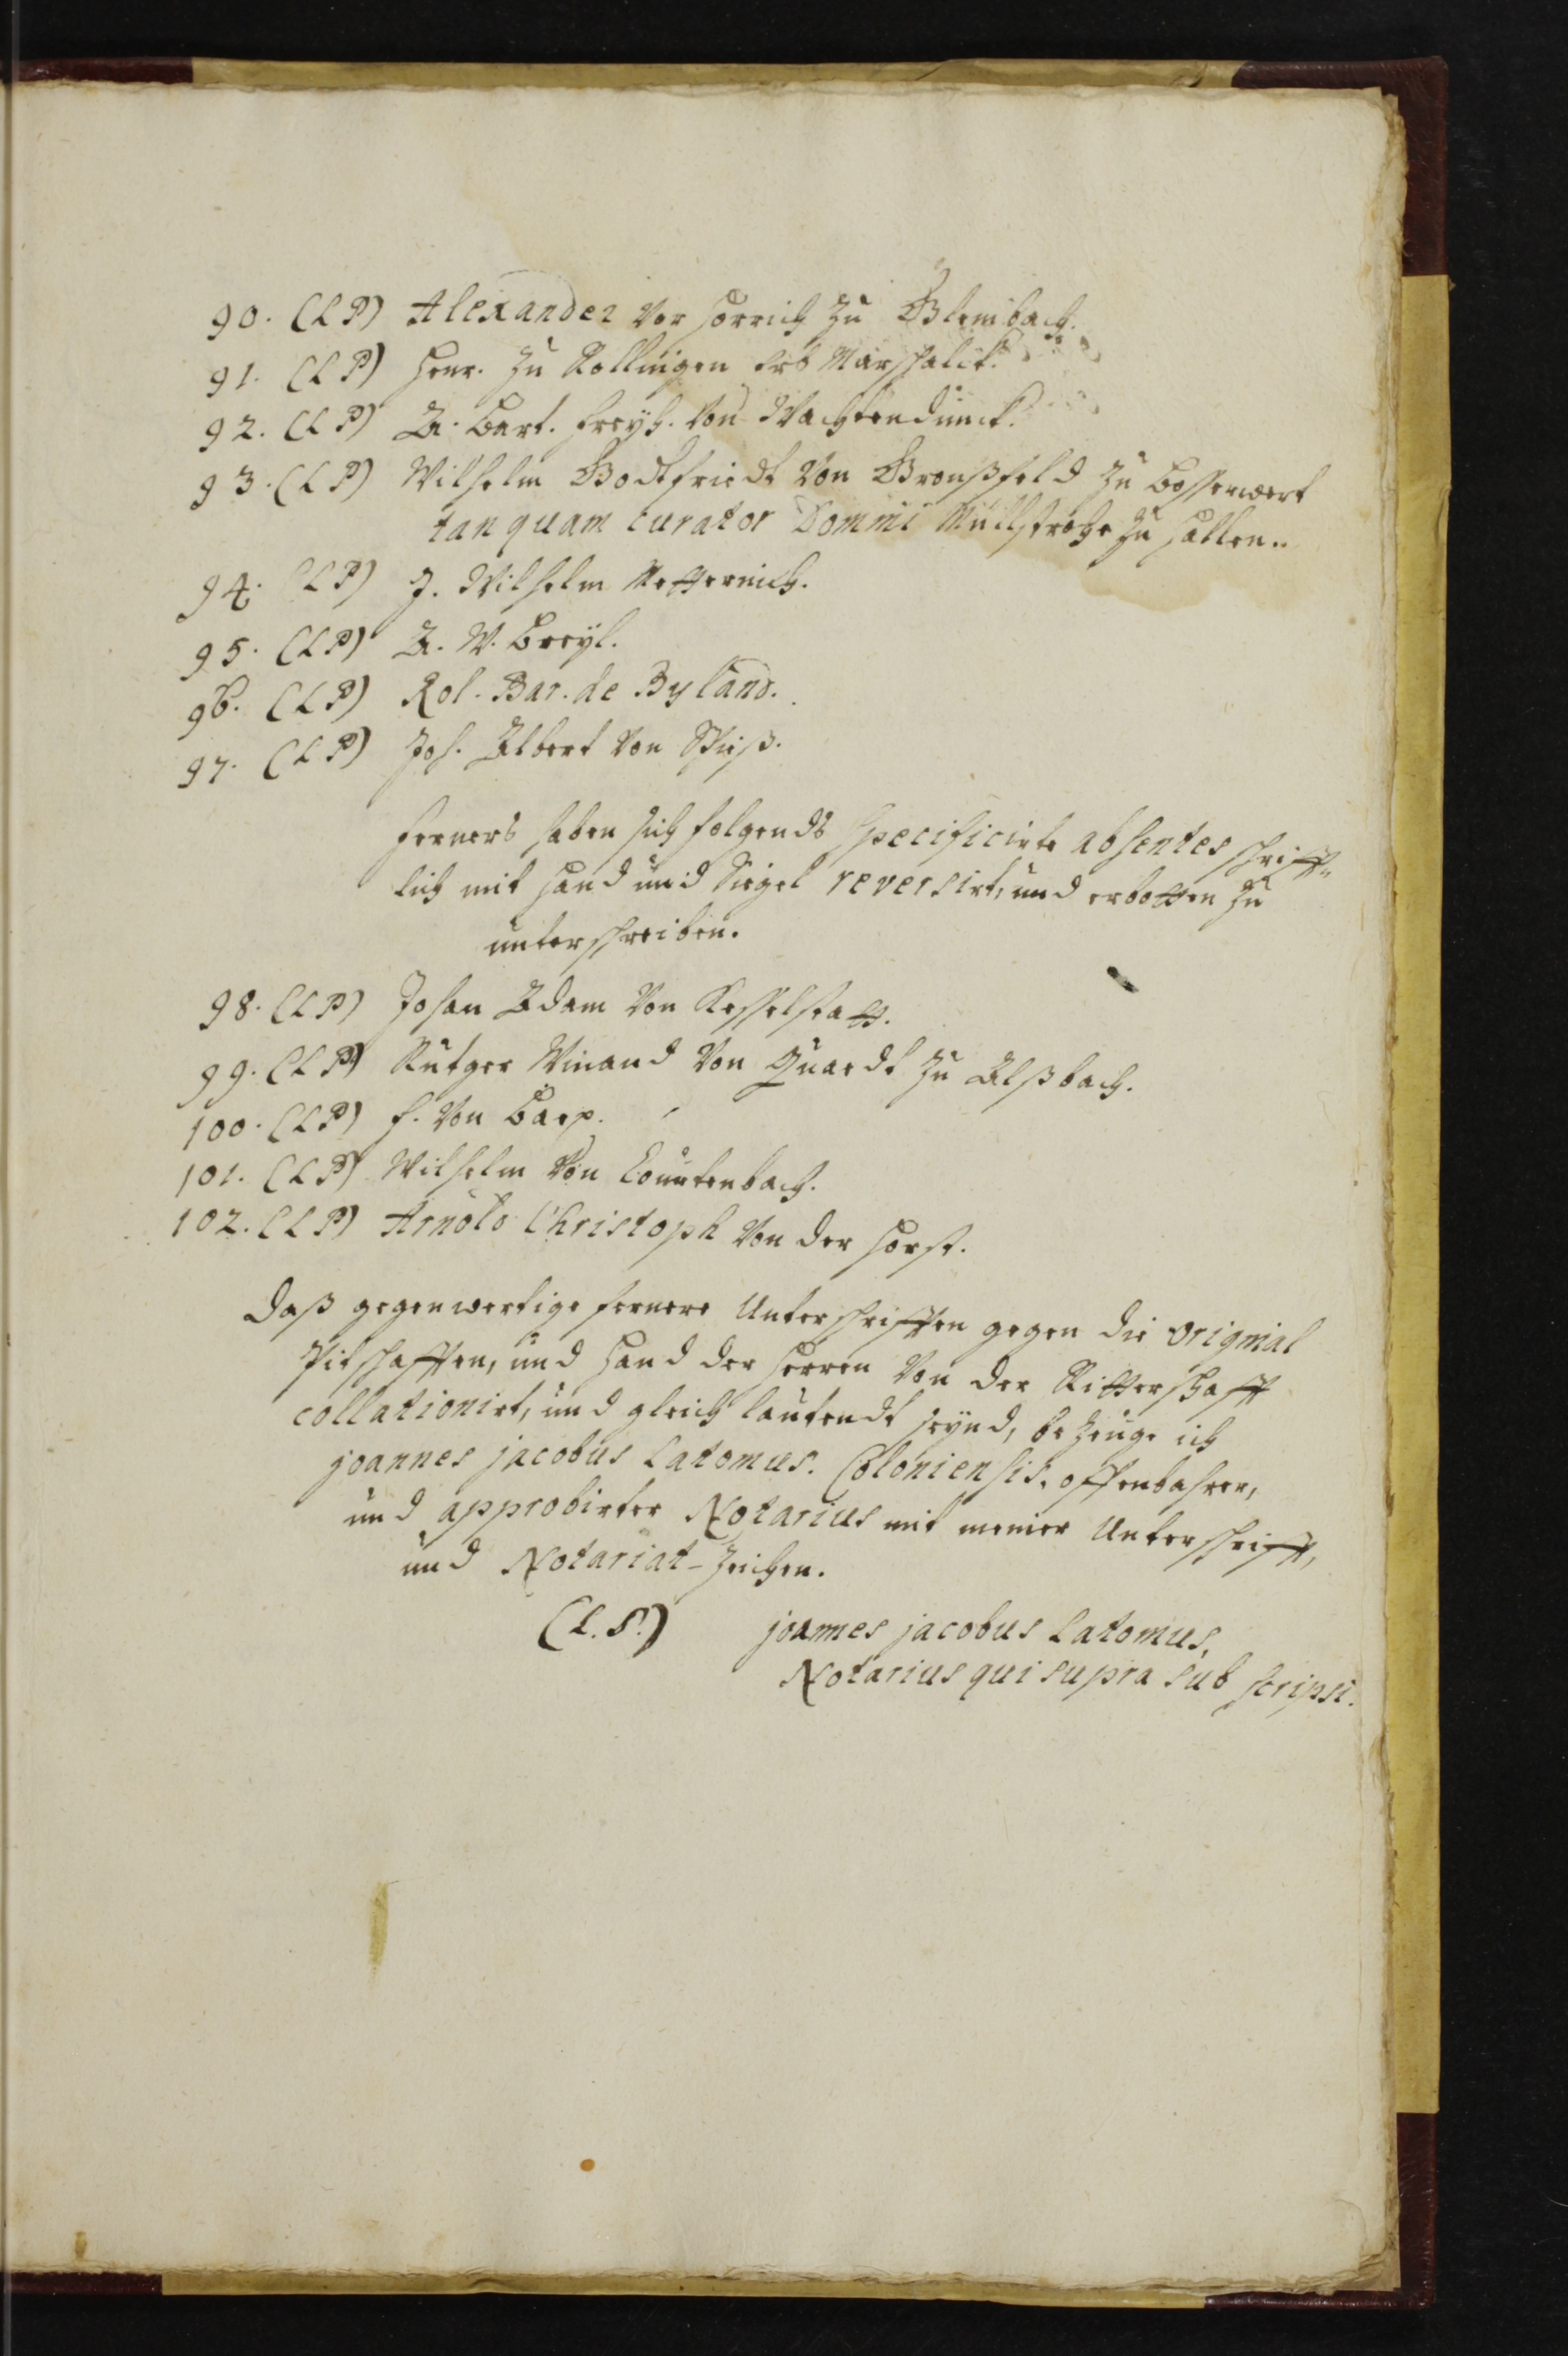 90. (LP) Alexander Vor Horrich zu Glimbach.
91. (LP) Henr. zu Rollingen Erb Marschalck.
92. (LP) A. Bart. Freyh. Von Wachtendunck.
93. (LP) Wilhelm Godtfriedt Von Gronßfeld zu Bossenwert
tanquam curator Domini Müllstrohe zu Hallen.
94. (LP) J. Wilhelm Metternich.
95. (LP) A. W. Breyl.
96. (LP) Rol. Bar. de Byland.
97. (LP) Joh. Albert Von Schieß.
Ferners haben sich folgends specificirte absentes schrifft-
lich mit Hand und Siegel reversirt, und erbotten zu
unterschreiben.
98. (LP) Johan Adam Von Kesselstatt.
99. (LP) Rutger Winand Von Quardt zu Alßbach.
100. (LP) F. Von Baexp.
101. (LP) Wilhelm Von Lountenbach.
102. (LP) Arnold Christoph Von der Horst.
Daß gegenwertige fernere Unterschrifften gegen die original
Pitschafften, und Hand der Herren Von der Ritterschafft
collationirt, und gleich lautendt seynd, bezeuge ich
joannes jacobus Latomus. Coloniensis. offenbahrer,
und approbirter Notarius mit meiner Unterschrifft,
und Notariat-Zeichen.
(L.S.) joannes jacobus Latomus,
Notarius qui supra sub scripsi.